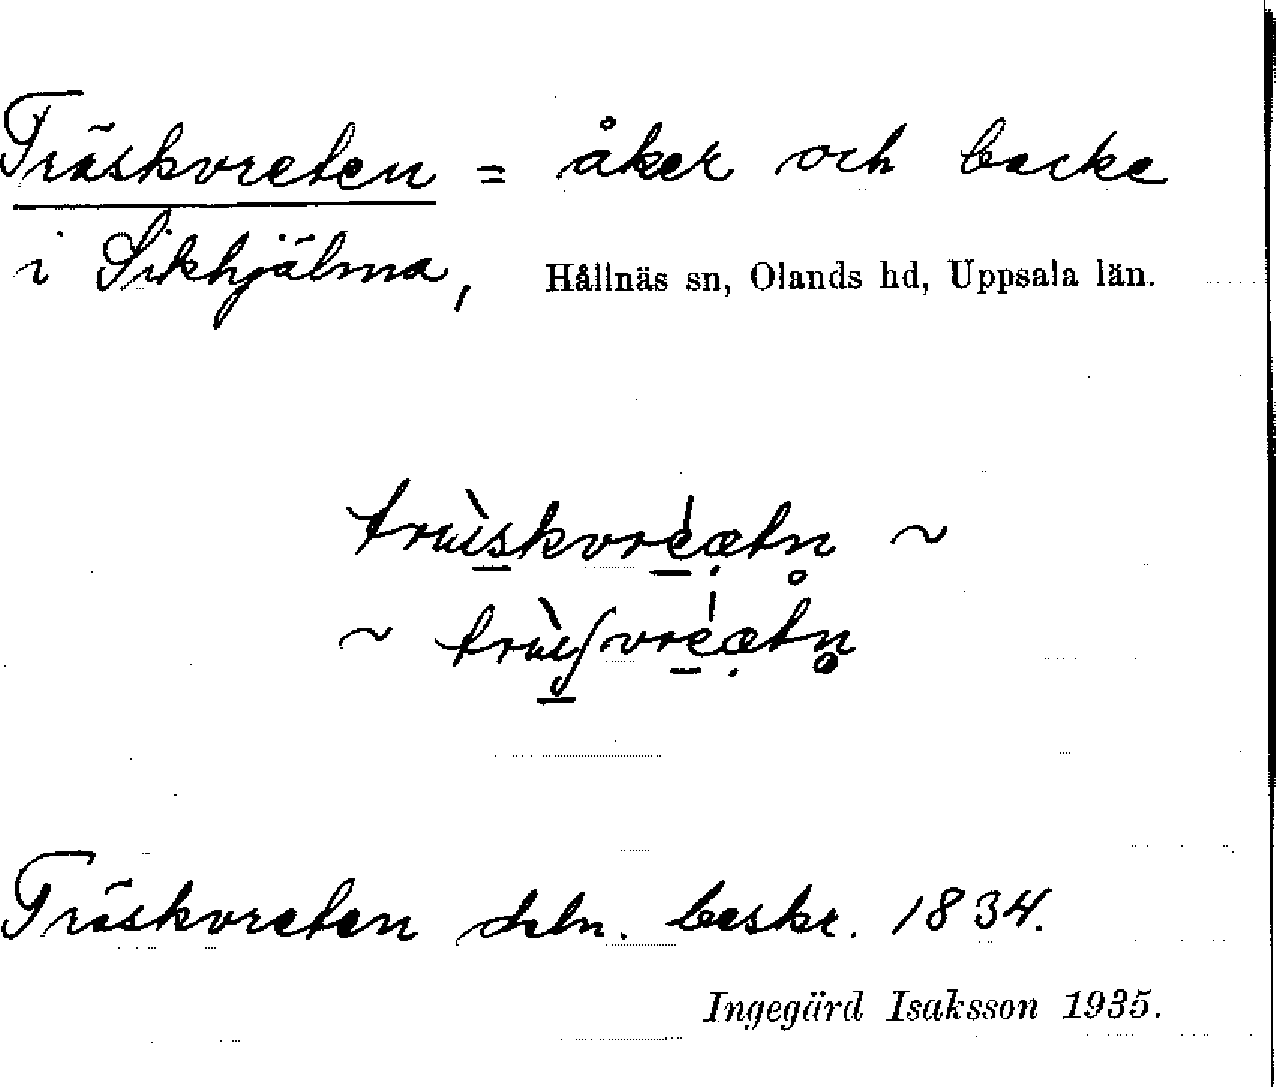 Träskvreten = åker och backe
i Sikhjälma, Hållnäs sn, Olands hd, Uppsala län.
Träskvreten dsbn. beskr. 1834.
Ingegärd Isaksson 1935.